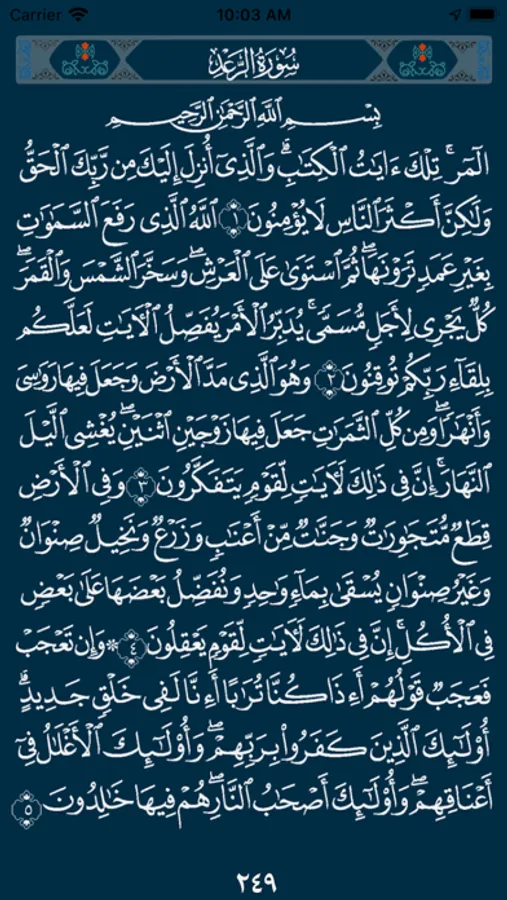 Carrier 10:03 AM
سُورَةُ الرَّعْدِ
بِسْمِ اللَّهِ الرَّحْمَٰنِ الرَّحِيمِ
الٓمٓرۚ تِلْكَ ءَايَٰتُ الْكِتَٰبِۗ وَالَّذِىٓ أُنزِلَ إِلَيْكَ مِن رَّبِّكَ الْحَقُّ
وَلَٰكِنَّ أَكْثَرَ النَّاسِ لَا يُؤْمِنُونَ ١ اللَّهُ الَّذِى رَفَعَ السَّمَٰوَٰتِ
بِغَيْرِ عَمَدٍ تَرَوْنَهَاۖ ثُمَّ اسْتَوَىٰ عَلَى الْعَرْشِۖ وَسَخَّرَ الشَّمْسَ وَالْقَمَرَۖ
كُلٌّ يَجْرِى لِأَجَلٍ مُّسَمًّىۚ يُدَبِّرُ الْأَمْرَ يُفَصِّلُ الْءَايَٰتِ لَعَلَّكُم
بِلِقَآءِ رَبِّكُمْ تُوقِنُونَ ٢ وَهُوَ الَّذِى مَدَّ الْأَرْضَ وَجَعَلَ فِيهَا رَوَٰسِىَ
وَأَنْهَٰرًاۖ وَمِن كُلِّ الثَّمَرَٰتِ جَعَلَ فِيهَا زَوْجَيْنِ اثْنَيْنِۖ يُغْشِى الَّيْلَ
النَّهَارَۚ إِنَّ فِى ذَٰلِكَ لَءَايَٰتٍ لِّقَوْمٍ يَتَفَكَّرُونَ ٣ وَفِى الْأَرْضِ
قِطَعٌ مُّتَجَٰوِرَٰتٌ وَجَنَّٰتٌ مِّنْ أَعْنَٰبٍ وَزَرْعٌ وَنَخِيلٌ صِنْوَانٌ
وَغَيْرُ صِنْوَانٍ يُسْقَىٰ بِمَآءٍ وَٰحِدٍ وَنُفَضِّلُ بَعْضَهَا عَلَىٰ بَعْضٍ
فِى الْأُكُلِۚ إِنَّ فِى ذَٰلِكَ لَءَايَٰتٍ لِّقَوْمٍ يَعْقِلُونَ ٤ ۞ وَإِن تَعْجَبْ
فَعَجَبٌ قَوْلُهُمْ أَءِذَا كُنَّا تُرَٰبًا أَءِنَّا لَفِى خَلْقٍ جَدِيدٍۗ
أُو۟لَٰٓئِكَ الَّذِينَ كَفَرُوا۟ بِرَبِّهِمْۖ وَأُو۟لَٰٓئِكَ الْأَغْلَٰلُ فِىٓ
أَعْنَاقِهِمْۖ وَأُو۟لَٰٓئِكَ أَصْحَٰبُ النَّارِۖ هُمْ فِيهَا خَٰلِدُونَ ٥
٢٤٩